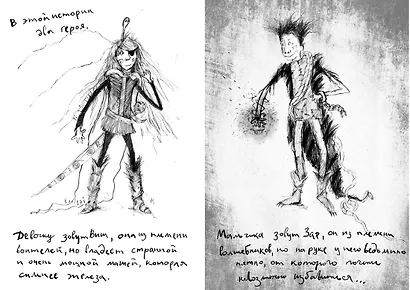 В этой истории
два героя.
Девочку зовут Виш, она из племени
воителей, но владеет странной
и очень мощной магией, которая
сильнее железа.
Мальчика зовут Зар, он из племени
волшебников, но на руке у него ведьмино
пятно, от которого почти
невозможно избавиться...